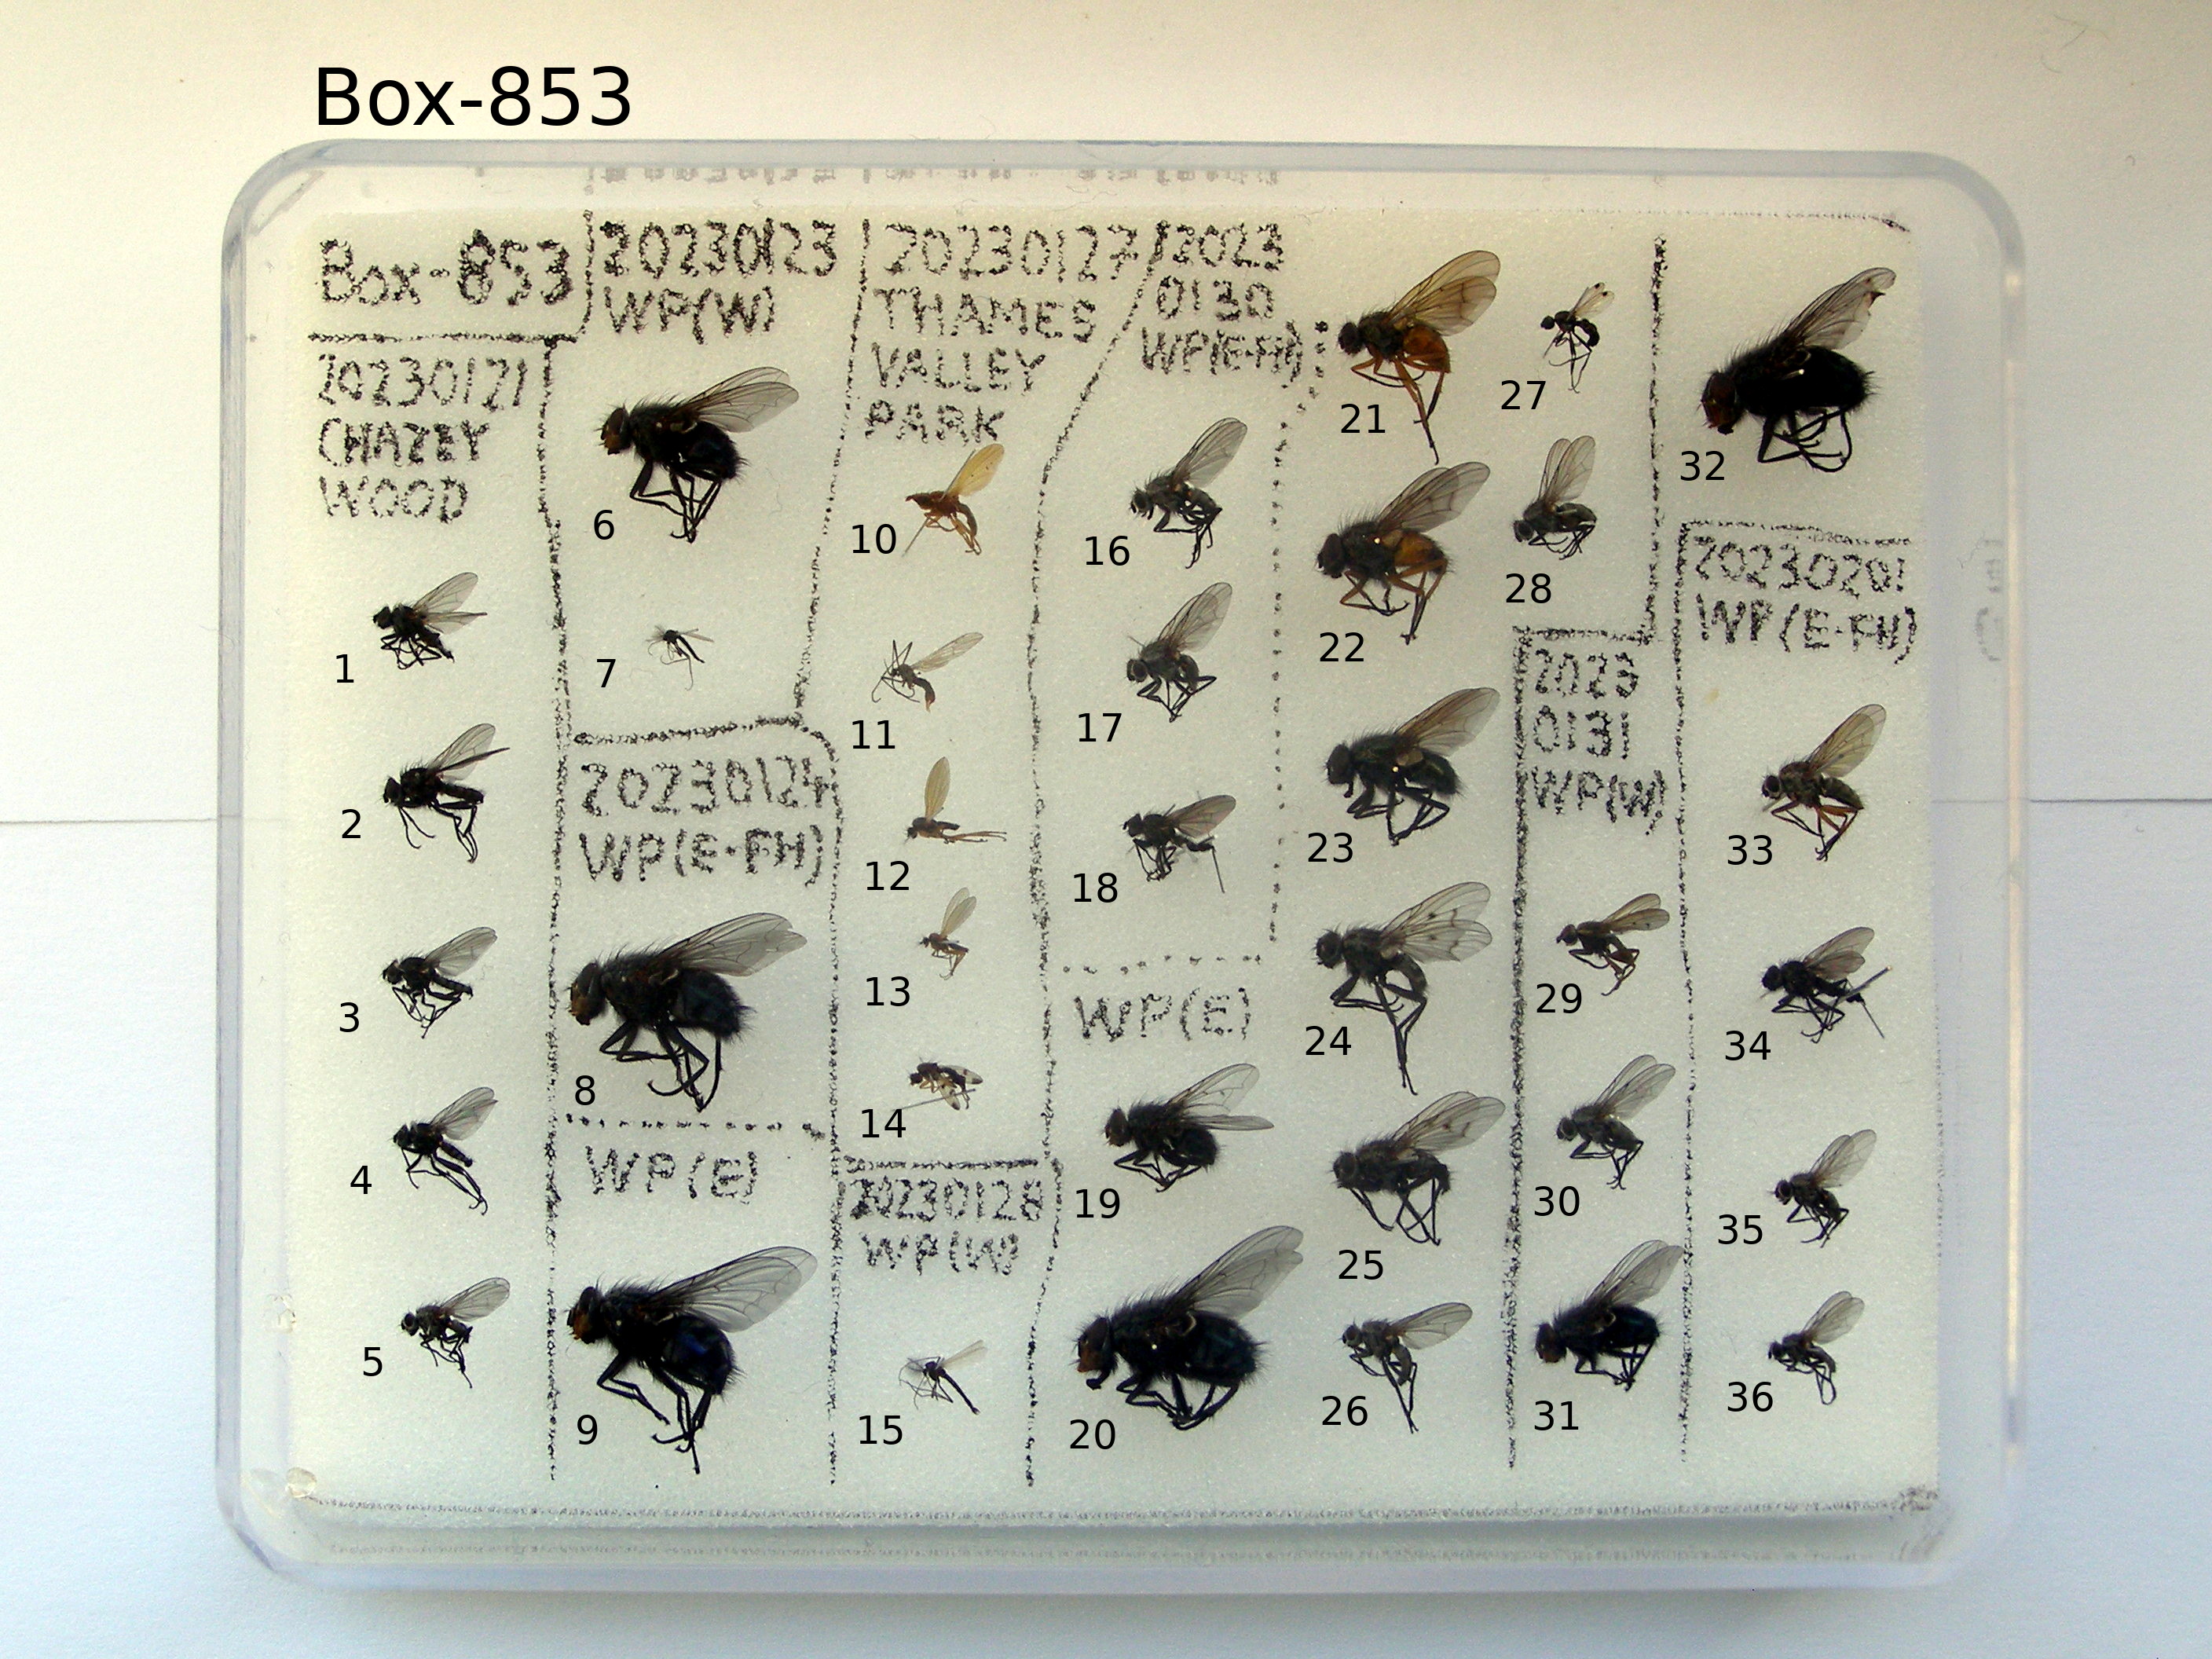 Box-853
Box-853
20230121
CHAZEY
WOOD
1
2
3
4
5
20230123
WP(W)
6
7
20230124
WP(E-FH)
8
WP(E)
9
20230127
THAMES
VALLEY
PARK
10
11
12
13
14
20230128
WP(W)
15
2023
0130
WP(E-FH)
16
17
18
WP(E)
19
20
21
22
23
24
25
26
27
28
2023
0131
WP(W)
29
30
31
32
20230201
WP(E-FH)
33
34
35
36